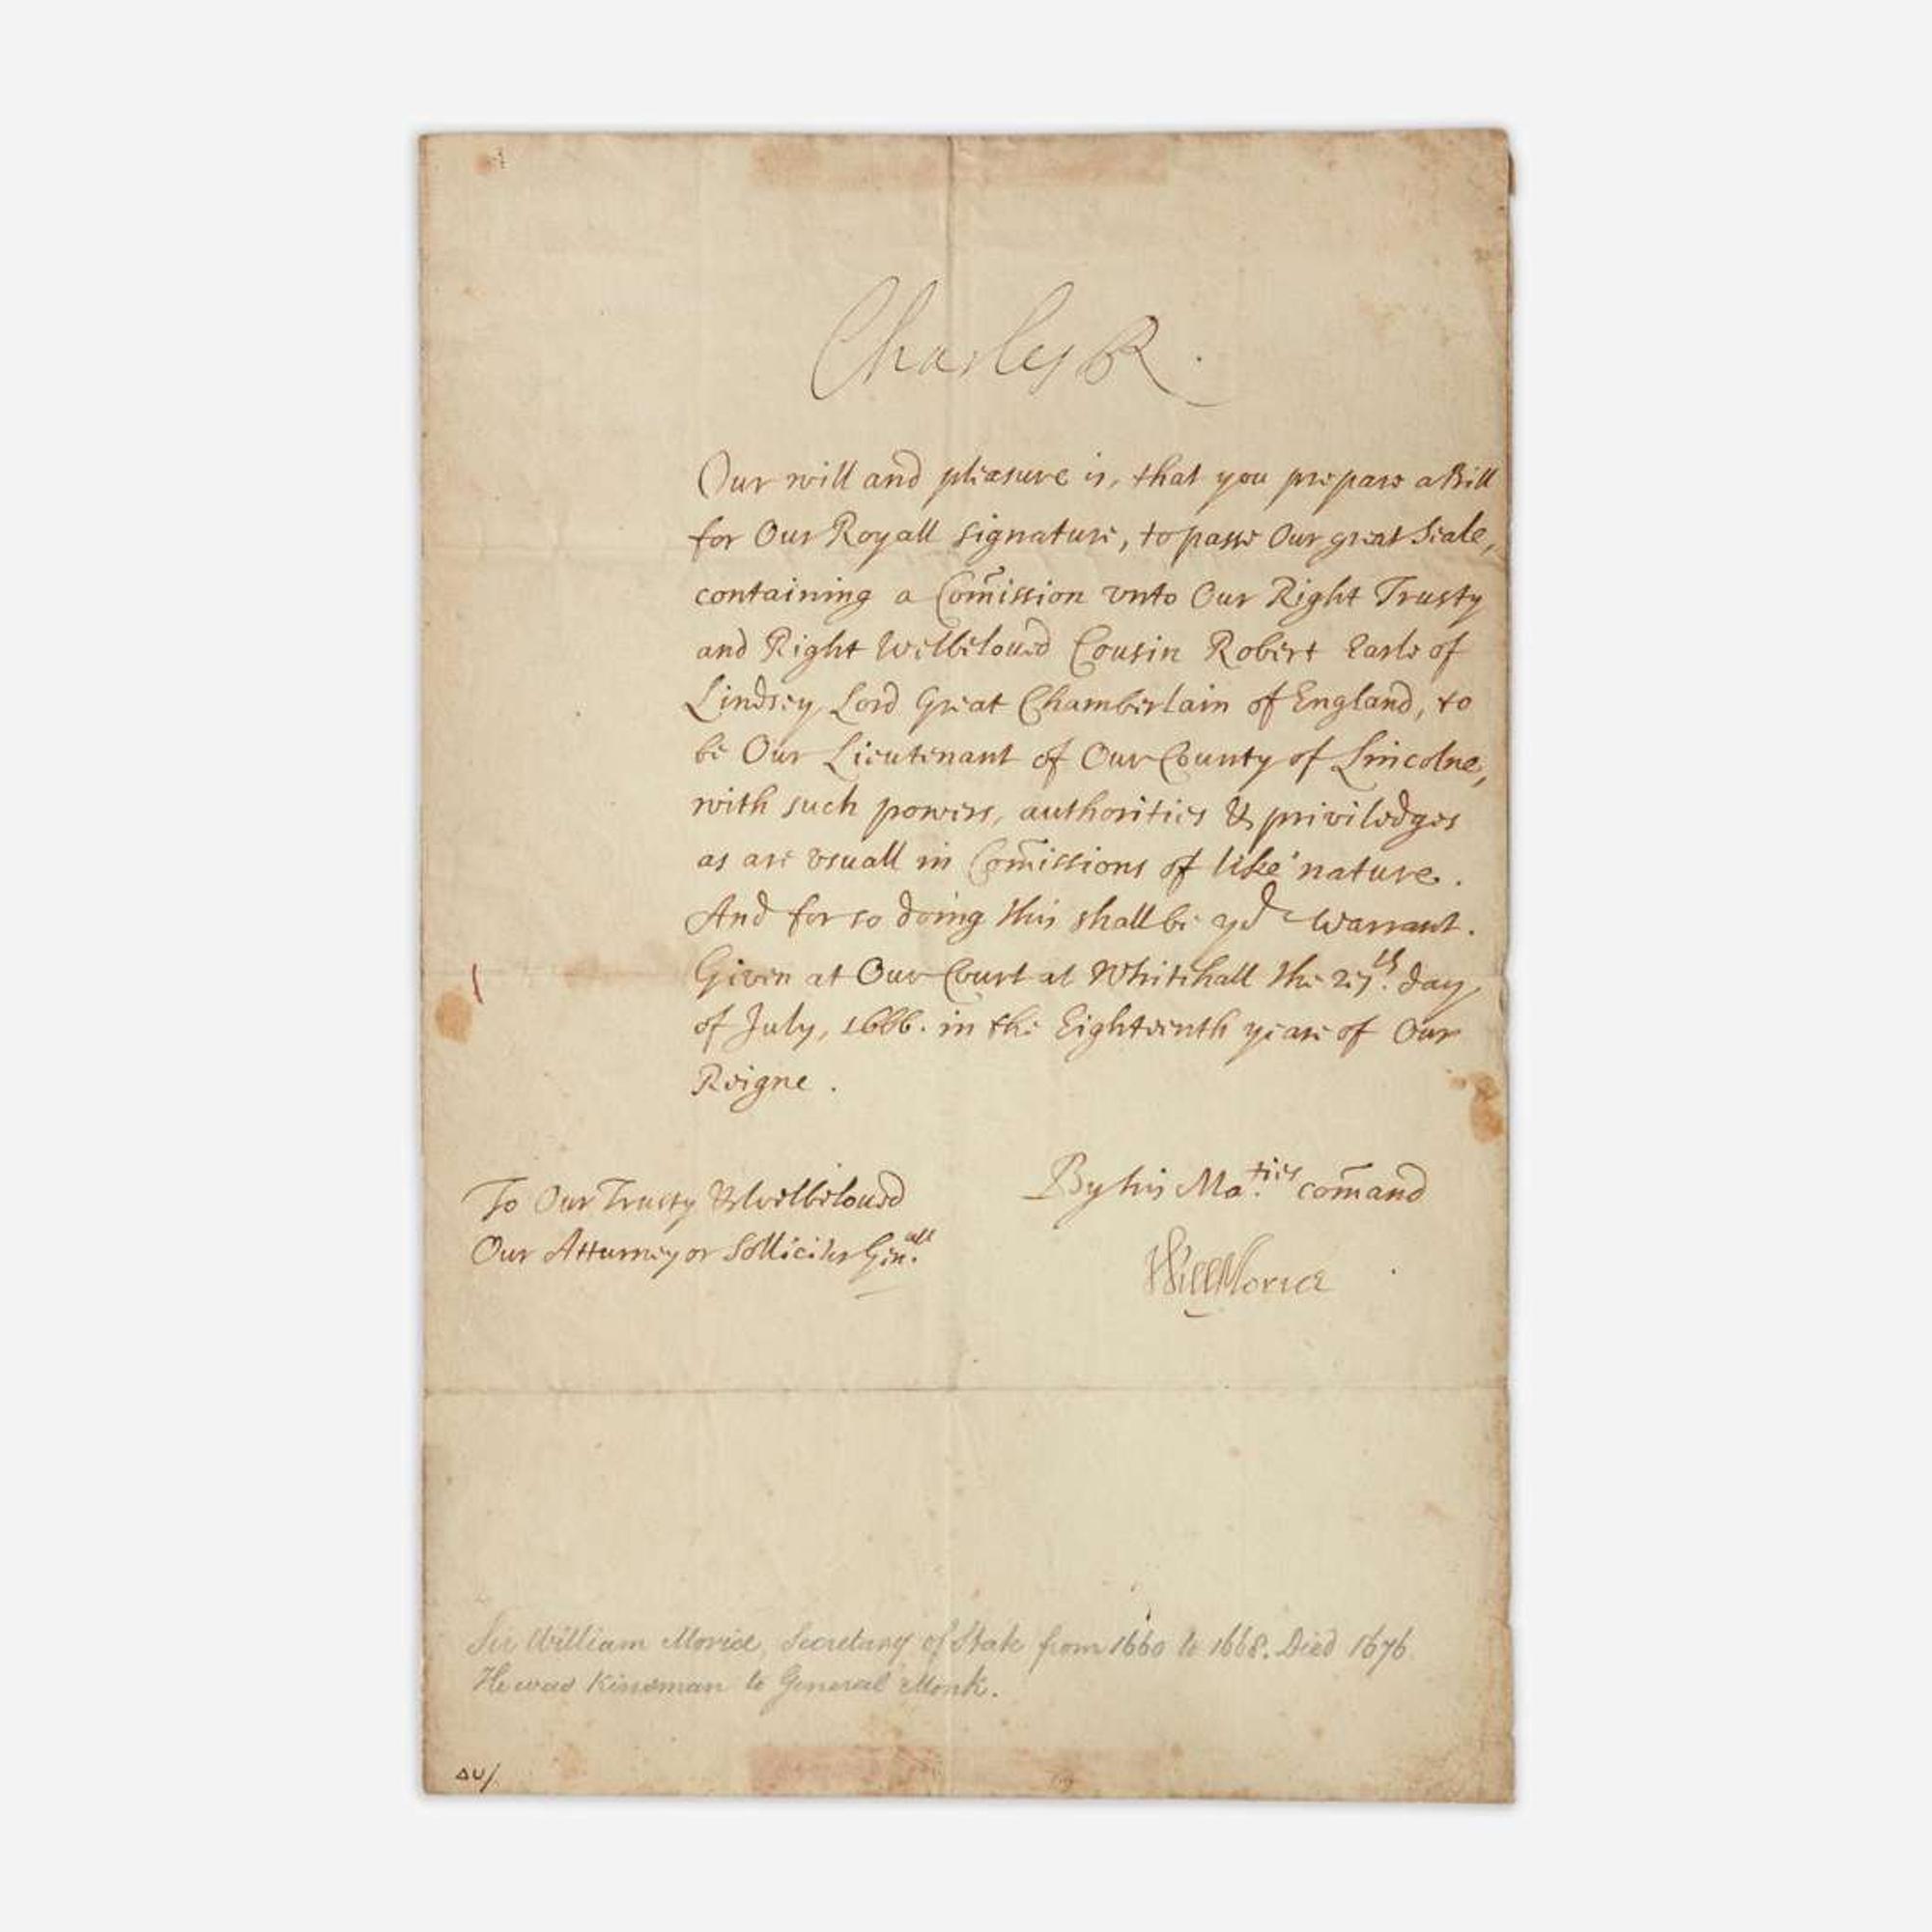 Charles R.
Our will and pleasure is, that you prepare a Bill
for Our Royall signature, to passe Our great Seale,
containing a Com̃ission vnto Our Right Trusty
and Right Welbeloued Cousin Robert Earle of
Lindsey Lord Great Chamberlain of England, to
be Our Lieutenant of Our County of Lincolne,
with such powers, authorities & priviledges
as are vsuall in Com̃issions of like nature.
And for so doing this shall be yor Warrant.
Given at Our Court at Whitehall the 27th. day
of July, 1666. in the Eighteenth yeare of Our
Reigne.
To Our Trusty & Welbeloued
Our Atturney or Solliciter Gen.all
By his Ma.ties com̃and
Will Morice
Sir William Morice, Secretary of State from 1660 to 1668. Died 1676
He was Kinsman to General Monk.